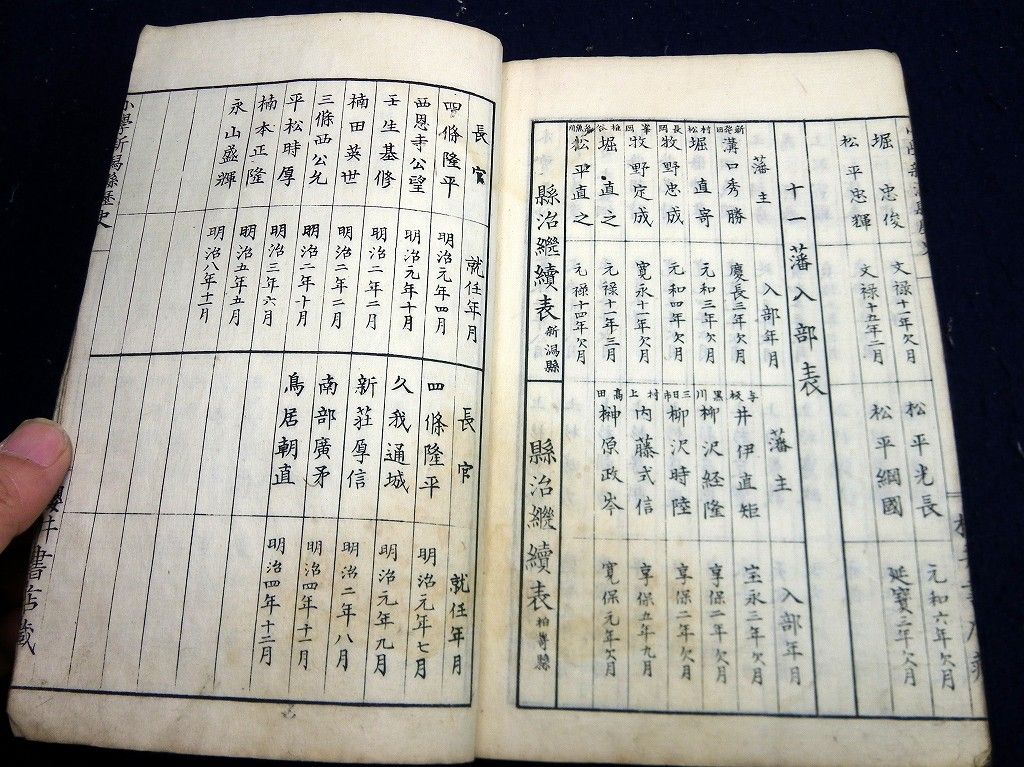 堀忠俊 文禄十一年欠月
松平忠輝 文禄十五年二月
松平光長 元和六年欠月
松平綱國 延寳三年欠月
十一藩入部表
藩主 入部年月
新発田 溝口秀勝 慶長三年欠月
村松 堀直寄 元和三年欠月
長岡 牧野忠成 元和四年欠月
峯岡 牧野定成 寛永十一年欠月
椎谷 堀直之 元禄十一年三月
糸魚川 松平直之 元禄十四年欠月
藩主 入部年月
与板 井伊直矩 宝永三年欠月
黒川 柳沢経隆 享保二年欠月
三日市 柳沢時陸 享保二年欠月
村上 内藤式信 享保五年九月
高田 榊原政岑 寛保元年欠月
縣治繼續表 新潟縣
縣治繼續表 柏崎縣
長官 就任年月
四條隆平 明治元年四月
西恩寺公望 明治元年十月
壬生基修 明治二年二月
楠田英世 明治二年二月
三條西公允 明治二年十月
平松時厚 明治三年六月
楠本正隆 明治五年五月
永山盛輝 明治八年十一月
長官 就任年月
四條隆平 明治元年七月
久我通城 明治元年九月
新荘厚信 明治二年八月
南部廣矛 明治四年十一月
鳥居朝直 明治四年十二月
小學新潟縣歴史
櫻井書店藏